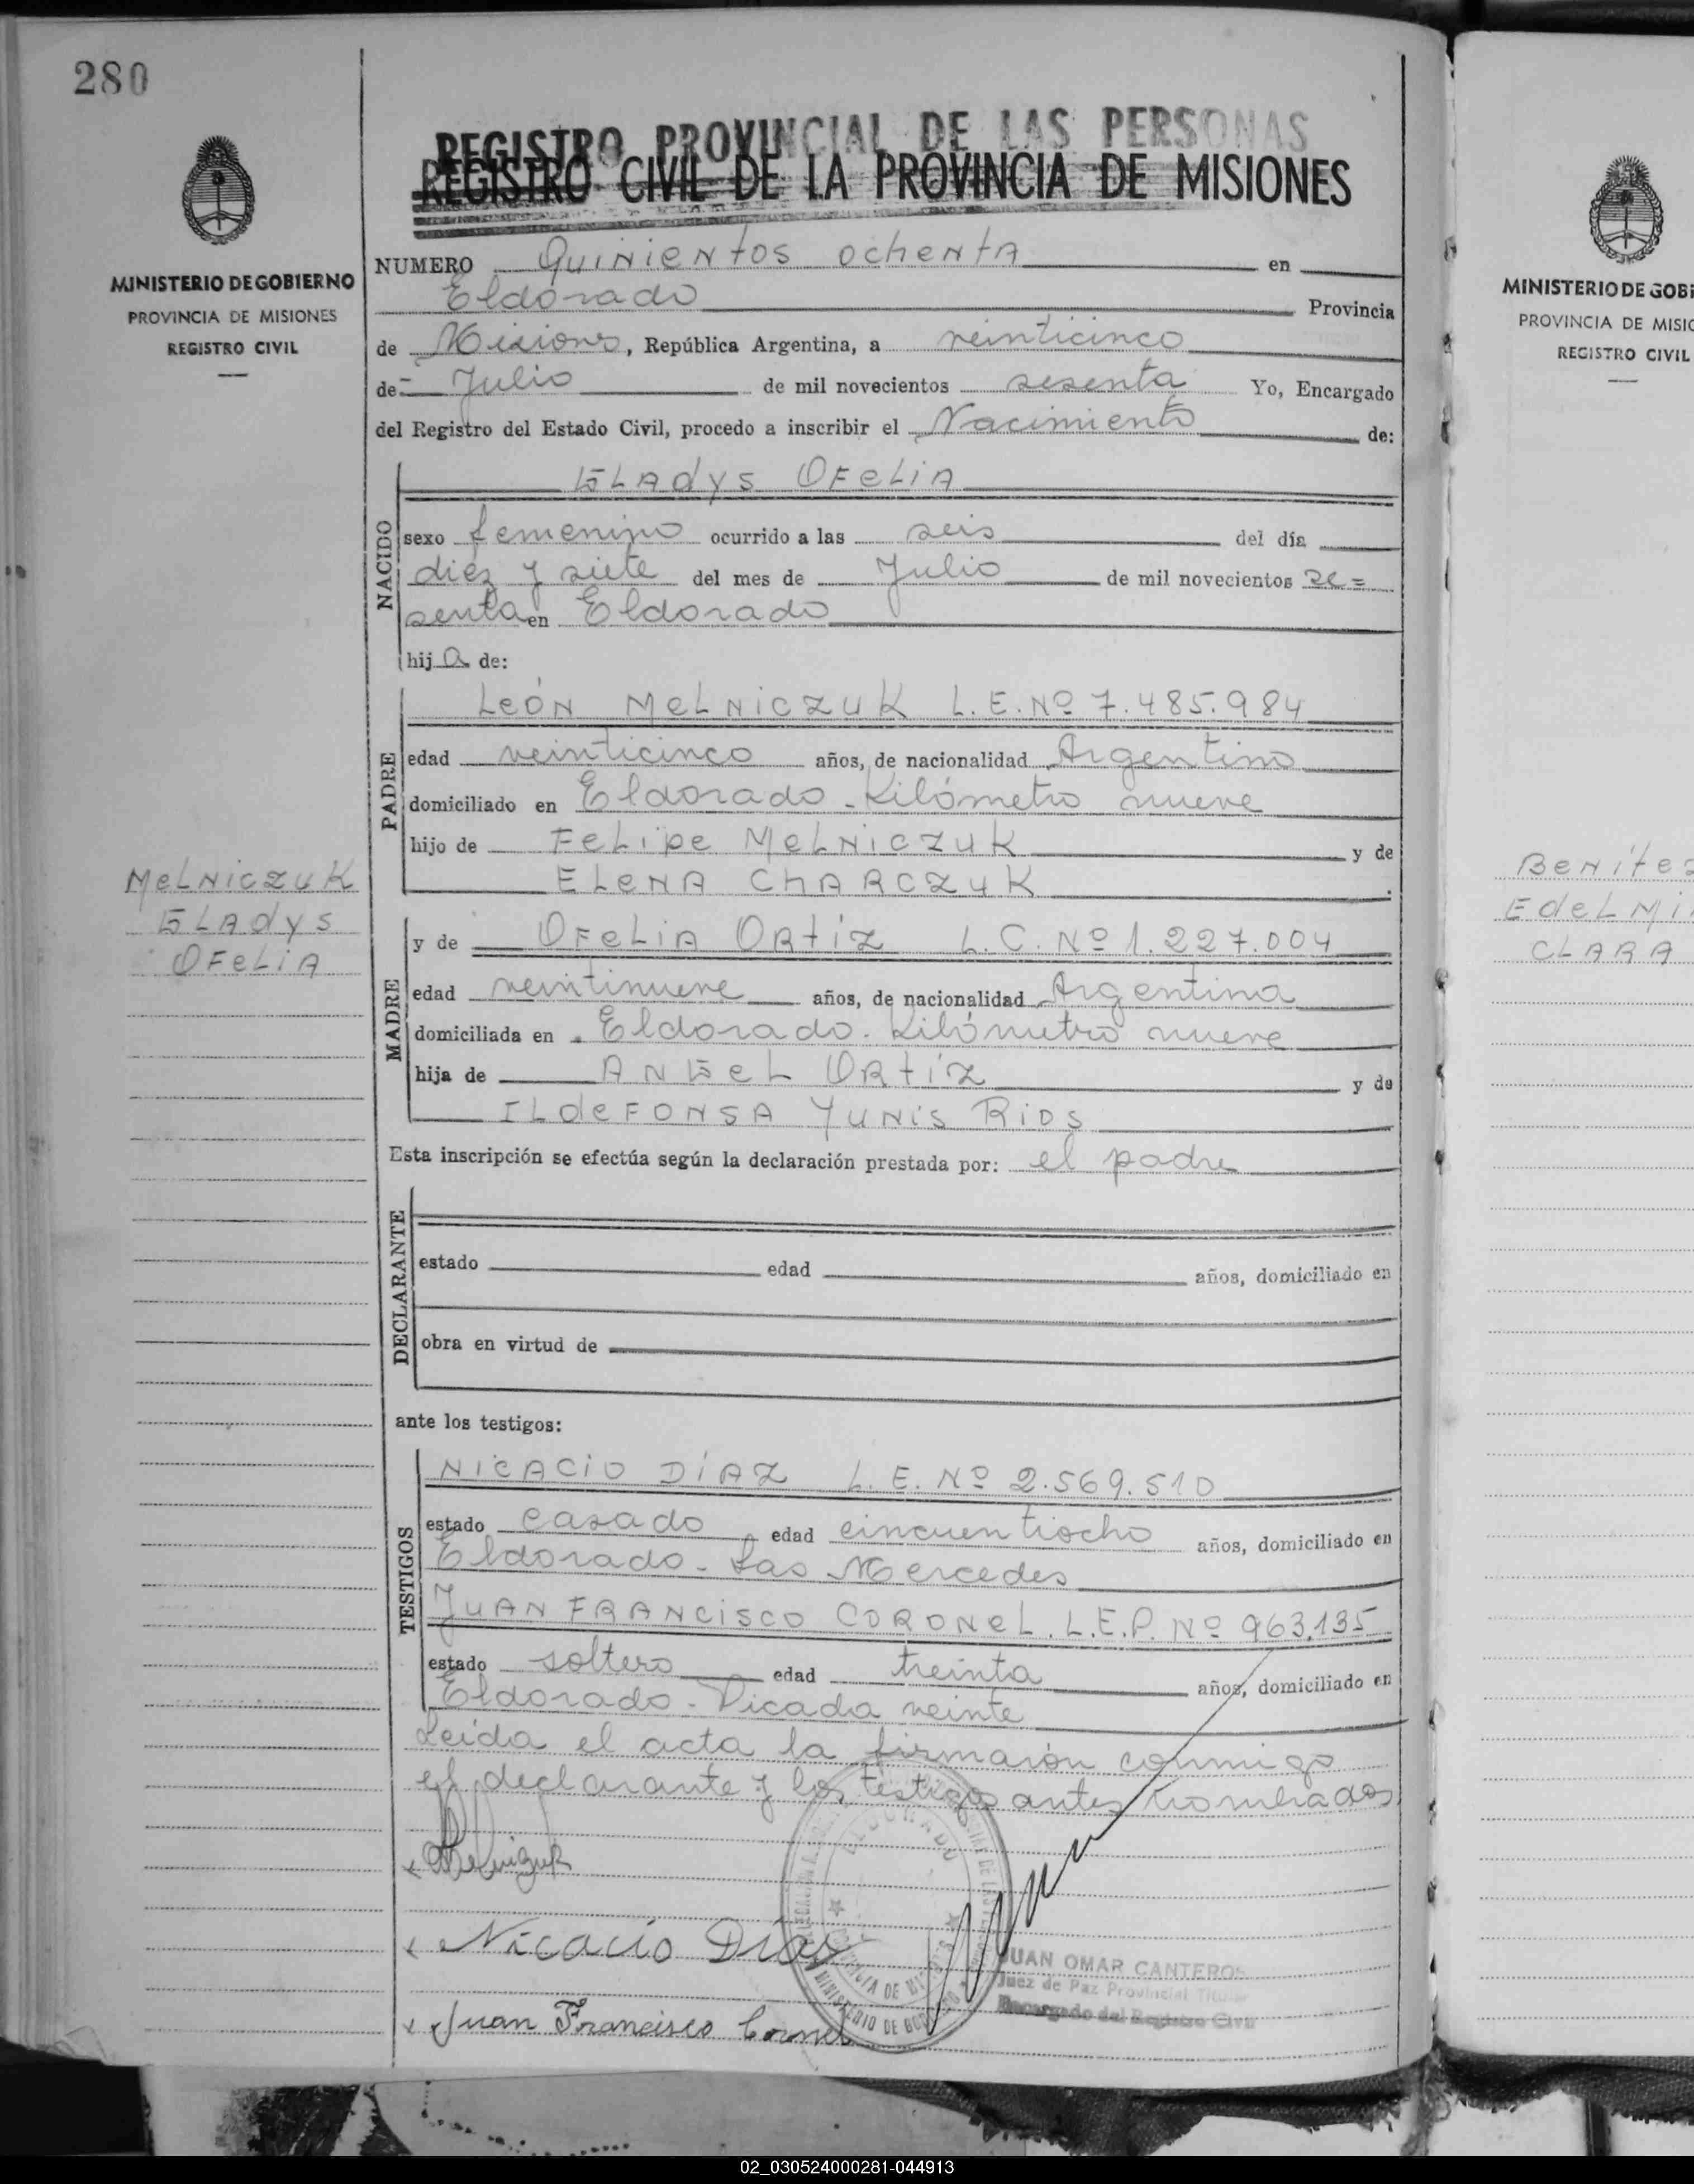 280
REGISTRO PROVINCIAL DE LAS PERSONAS
REGISTRO CIVIL DE LA PROVINCIA DE MISIONES
MINISTERIO DE GOBIERNO
PROVINCIA DE MISIONES
REGISTRO CIVIL
NUMERO Quinientos ochenta en
Eldorado Provincia
de Misiones, República Argentina, a veinticinco
de Julio de mil novecientos sesenta Yo, Encargado
del Registro del Estado Civil, procedo a inscribir el Nacimiento de:
NACIDO
GLAdys OFeLiA
sexo femenino ocurrido a las seis del día
diez y siete del mes de Julio de mil novecientos se=
senta en Eldorado
hija de:
PADRE
LeÓN MeLNiczuK L.E.Nº 7.485.984
edad veinticinco años, de nacionalidad Argentino
domiciliado en Eldorado - Kilómetro nueve
hijo de FeLipe MeLNiczuK y de
ELeNA ChARCzuK
MeLNiczuK
GLAdys
OFeLiA
MADRE
y de OFeLiA ORtíz L.C.Nº 1.227.004
edad veintinueve años, de nacionalidad Argentina
domiciliada en Eldorado. Kilómetro nueve
hija de ANGeL ORtíz y de
ILdeFONSA YuNis Rios
Esta inscripción se efectúa según la declaración prestada por: el padre
DECLARANTE
estado edad años, domiciliado en
obra en virtud de
ante los testigos:
TESTIGOS
NicACio DíAz L.E. Nº 2.569.510
estado casado edad cincuentiocho años, domiciliado en
Eldorado - Las Mercedes
JuAN FRANcisco CORONeL. L.E.P. Nº 963.135
estado soltero edad treinta años, domiciliado en
Eldorado - Picada veinte
Leída el acta la firmarón conmigo
el declarante y los testigos antes nombrados
Melniczuk
Nicacio Díaz
Juan Francisco Coronel
ELDORADO
MINISTERIO DE GOBIERNO
JUAN OMAR CANTEROS
Juez de Paz Provincial Titular
Encargado del Registro Civil
MINISTERIO DE GOBI
PROVINCIA DE MISIO
REGISTRO CIVIL
BeNítez
EdeLMi
CLARA
02_030524000281-044913